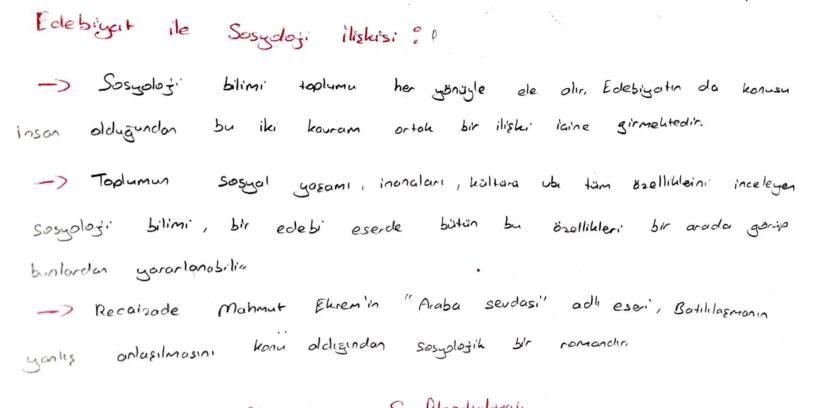 Edebiyat ile Sosyoloji ilişkisi :
→ Sosyoloji bilimi toplumu her yönüyle ele alır. Edebiyatın da konusu
insan olduğundan bu iki kavram ortak bir ilişki içine girmektedir.
→ Toplumun sosyal yaşamı, inançları, kültürü vb. tüm özelliklerini inceleyen
sosyoloji bilimi, bir edebi eserde bütün bu özellikleri bir arada görüp
bunlardan yararlanabilir.
→ Recaizade Mahmut Ekrem'in "Araba sevdası" adlı eseri, Batılılaşmanın
yanlış anlaşılmasını konu aldığından sosyolojik bir romandır.